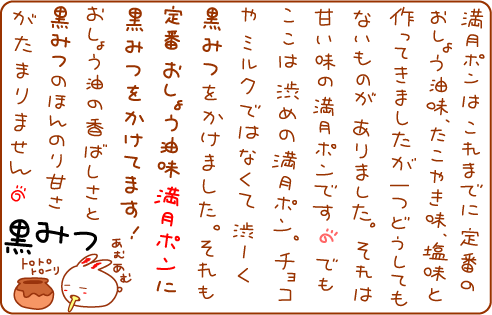 満月ポンはこれまでに定番の
おしょう油味、たこやき味、塩味と
作ってきましたが一つどうしても
ないものがありました。それは
甘い味の満月ポンです。でも
ここは渋めの満月ポン。チョコ
やミルクではなくて渋ーく
黒みつをかけました。それも
定番おしょう油味満月ポンに
黒みつをかけてます!
おしょう油の香ばしさと
黒みつのほんのり甘さ
がたまりません
黒みつ
あむあむ。
トロトロ
トローリ